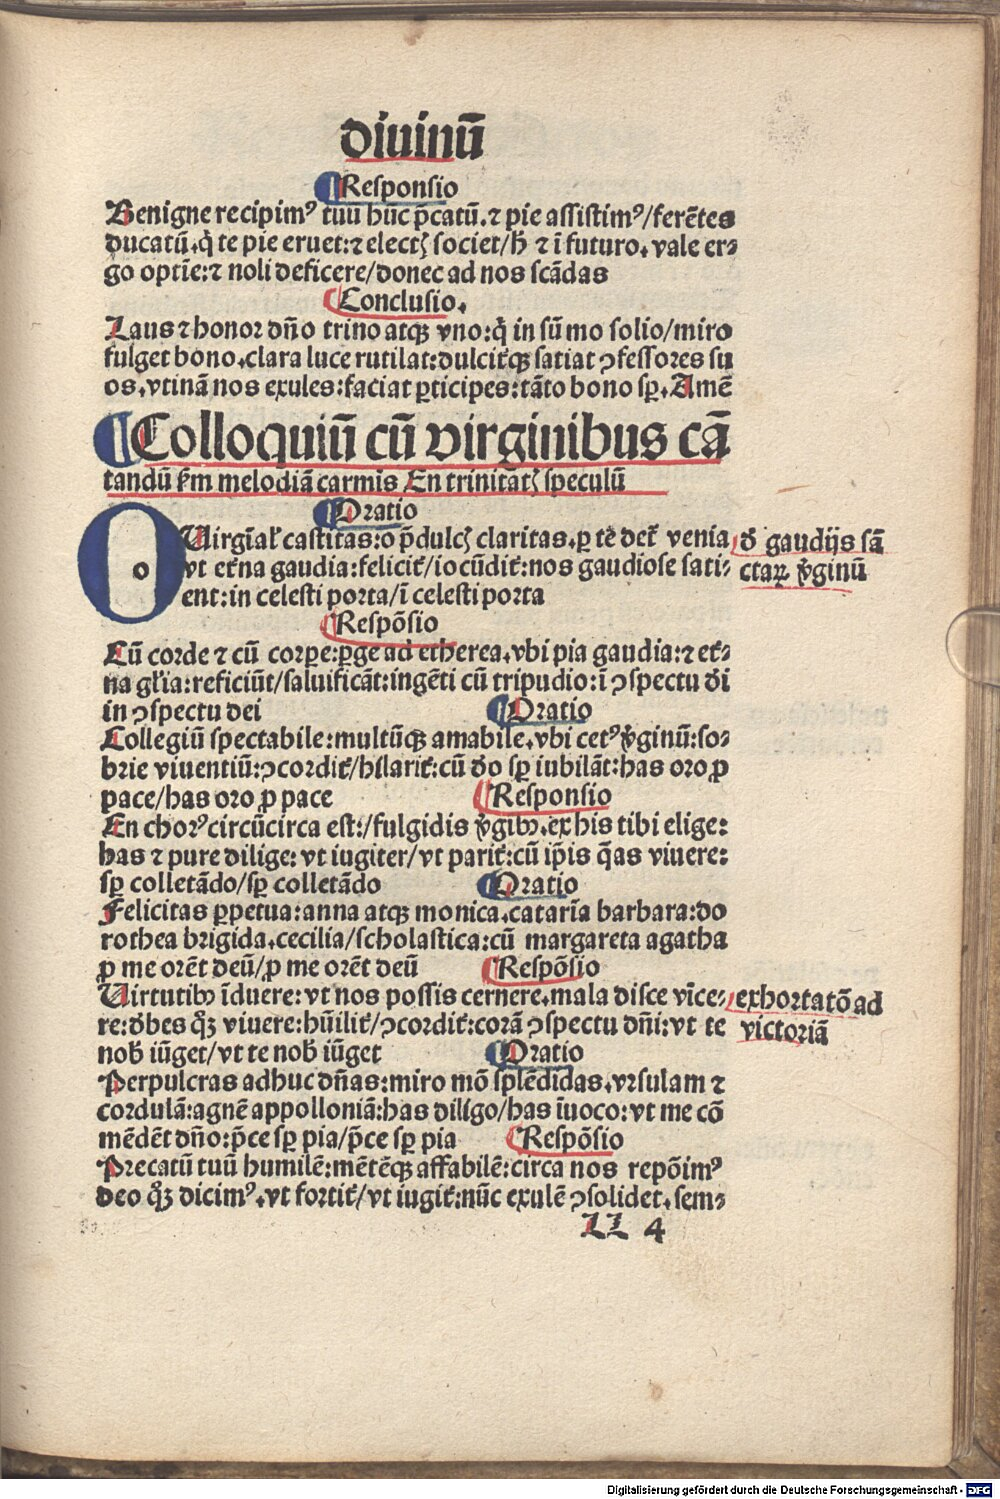 diuinū
¶Responsio
Benigne recipimꝰ tuū hūc p̄catū.⁊ pie assistimꝰ/ferētes
ducatū.q̇ te pie eruet:⁊ electꝭ societ/h̄ ⁊ ī futuro.vale er⸗
go optīe:⁊ noli deficere/donec ad nos scādas
¶Conclusio.
Laus ⁊ honor dn̄o trino atqꝫ vno:q̇ in sūmo solio/miro
fulget bono.clara luce rutilat:dulcit̓qꝫ satiat ꝯfessores su
os.vtinā nos exules:faciat ꝑticipes:tāto bono sꝑ.Amē
¶Colloquiū cū virginibus cā
tandū ẜm melodiā carmis En trinitatꝭ speculū
¶Oratio
O o Uirgīal̓ castitas:o p̄dulcꝭ claritas.ꝑ te det̓ venia
vt et̓na gaudia:felicit̓/iocūdit̓:nos gaudiose sati⸗
ent:in celesti porta/ī celesti porta
đ gaudijs sā
ctaꝝ v̓ginū
¶Respōsio
Cū corde ⁊ cū corpe:ꝑge ad etherea.vbi pia gaudia:⁊ et̓⸗
na gl̓ia:reficiūt/saluificāt:ingēti cū tripudio:ī ꝯspectu di
in ꝯspectu dei ¶Oratio
Collegiū spectabile:multūqꝫ amabile.vbi cetꝰ v̓ginū:so⸗
brie viuentiū:ꝯcordit̓/hilarit̓:cū đo sꝑ iubilāt:has oro ꝓ
pace/has oro ꝓ pace ¶Responsio
En chorꝰ circūcirca est:/fulgidis v̓gibꝫ.ex his tibi elige:
has ⁊ pure dilige:vt iugiter/vt parit̓:cū ip̄is q̄as viuere:
sꝑ colletādo/sꝑ colletādo ¶Oratio
Felicitas ꝑpetua:anna atqꝫ monica.catarīa barbara:do
rothea brigida.cecilia/scholastica:cū margareta agatha
ꝓ me orēt deū/ꝓ me orēt deū ¶Respōsio
Uirtutibꝫ īduere:vt nos possis cernere.mala disce vīce⸗
re:đbes qꝫ viuere:hūilit̓/ꝯcordit̓:corā ꝯspectu dn̄i:vt te
nob̓ iūget/vt te nob̓ iūget ¶Oratio
exhortatō ad
victoriā
Perpulcras adhuc dn̄as:miro mō splēdidas.vrsulam ⁊
cordulā:agnē appolloniā:has diligo/has īuoco:vt me cō
mēdēt dn̄o:p̄ce sꝑ pia/p̄ce sꝑ pia ¶Respōsio
Precatū tuū humilē:mētēqꝫ affabilē:circa nos repōimꝰ
deo qꝫ dicimꝰ.vt fortit̓/vt iugit̓:nūc exulē ꝯsolidet.sem⸗
LL 4
Digitalisierung gefördert durch die Deutsche Forschungsgemeinschaft - DFG